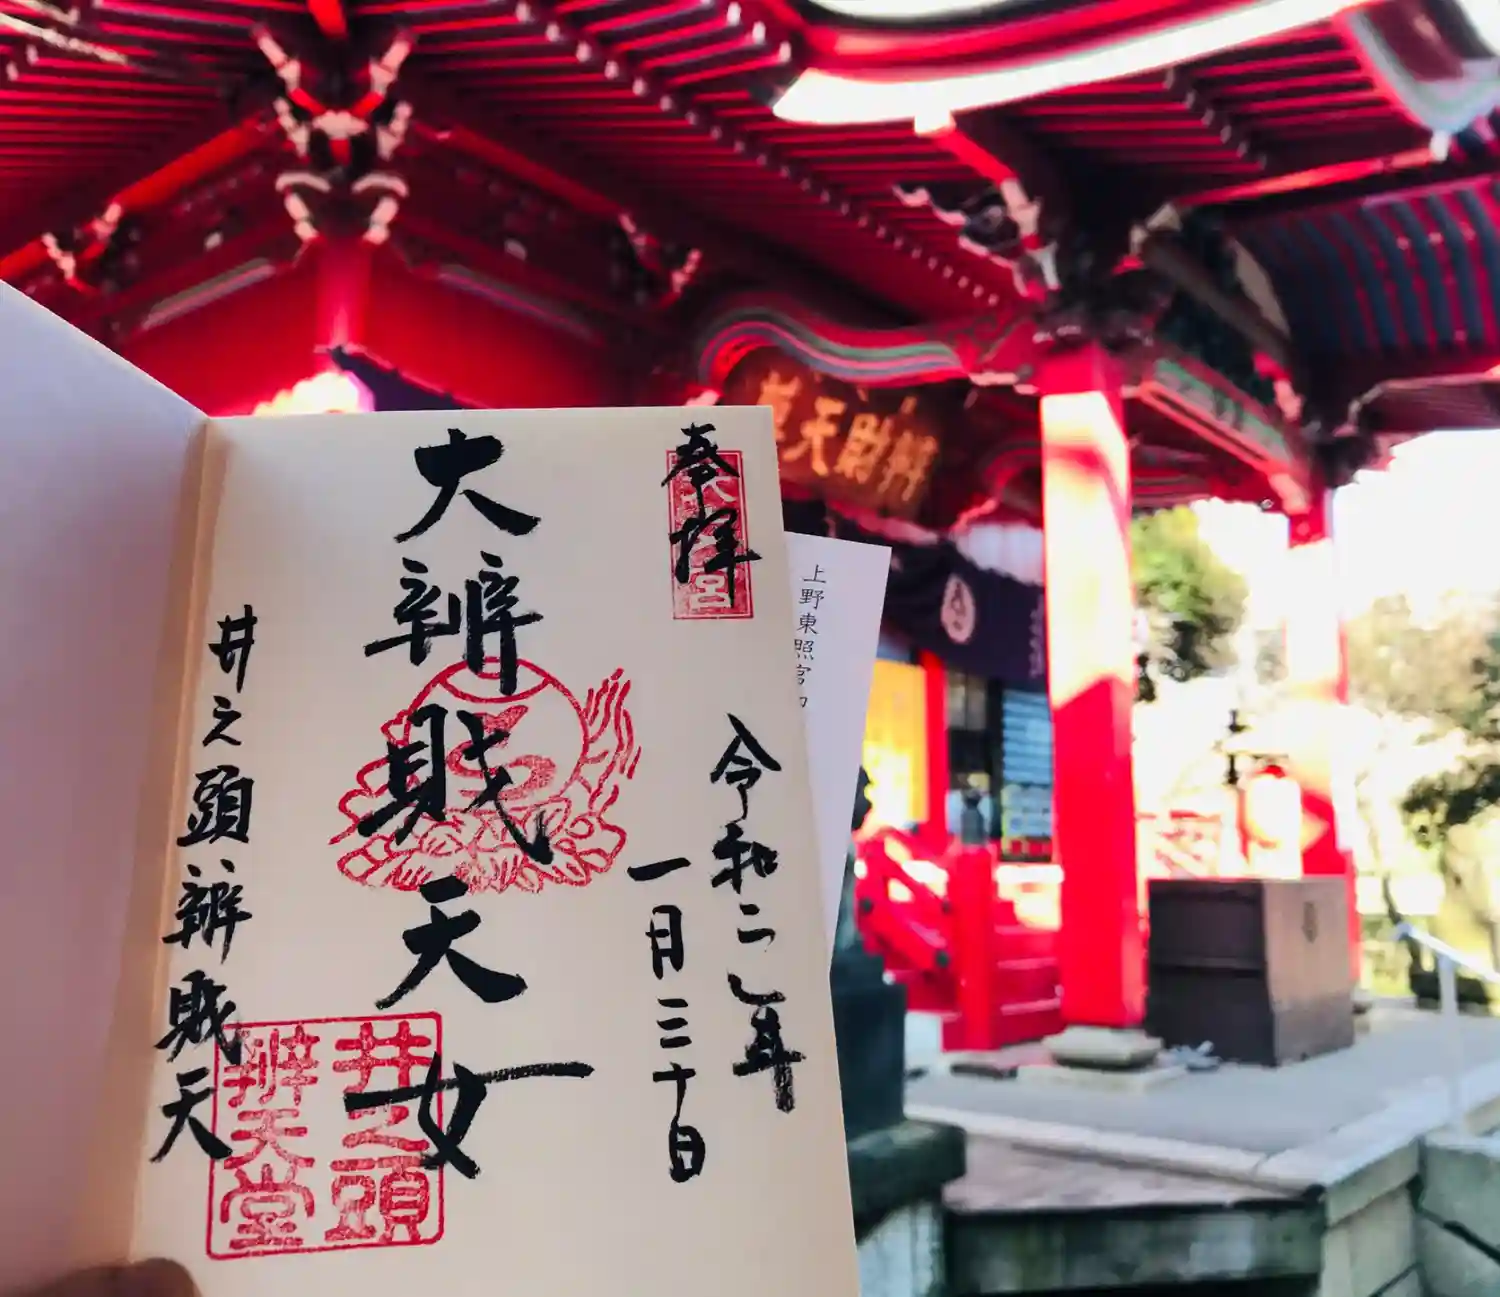 奉拝
令和二年
一月三十日
大辨財天女
井之頭辨財天
井之頭
辨天堂
上野東照宮
辨財天